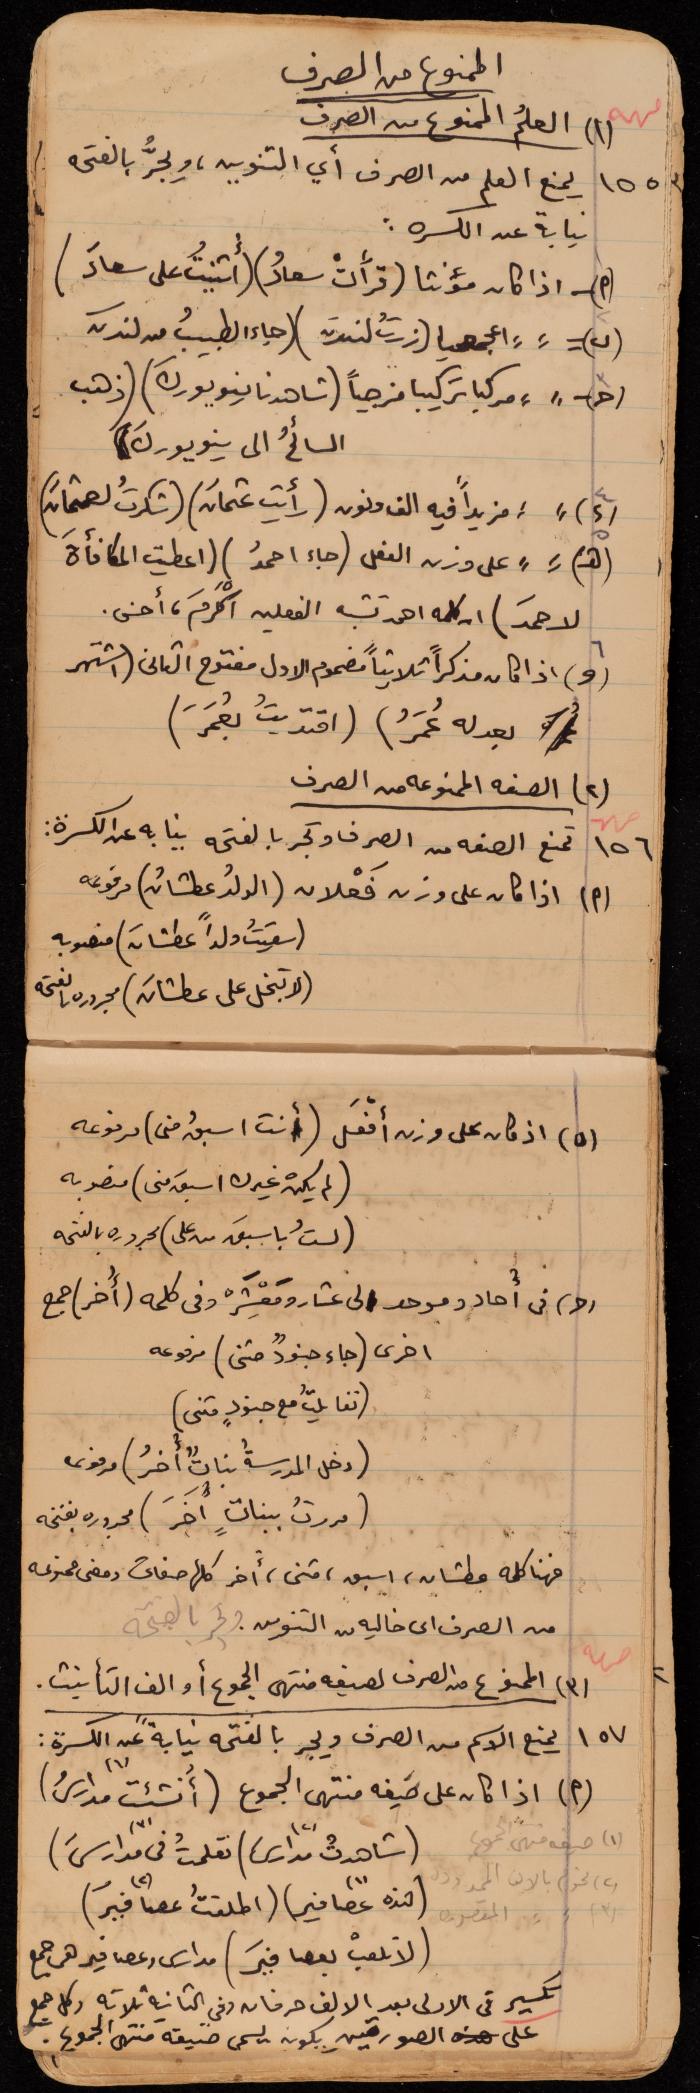 الممنوع من الصرف
(١) العلمُ الممنوع من الصرف
مهمه
١٥٥ يمنع العلم من الصرف أي التنوين، ويجرُّ بالفتحه
نيابة عن الكسره :
(م)- اذا كان مؤنثا (قرأتْ سعادُ) (أثنيتُ على سعادَ)
(ب)= ״ ״ اعجميا (زرتُ لندنَ) (جاء الطبيبُ من لندنَ
(حـ)- ״ ״ مركبا تركيبا مزجياً (شاهدنا نيويوركَ) (ذهب
السائحُ الى نيويوركَ)
(ء) ״ ״ مزيداً فيه الف ونون (رأيت عثمانَ) (شكرتُ لعثمانَ)
(هـ) ״ ״ على وزن الفعل (جاء احمدُ) (اعطيت المكافأةَ
لاحمدَ) ان كلمه احمد تشبه الفعلين أكْرَمَ، أحسن.
(و) اذا كان مذكراً ثلاثياً مضموم الاول مفتوح الثاني (اشتهر
بعدله عُمَرُ) (اقتديتُ بعُمَرَ)
(٢) الصفه الممنوعه من الصرف
مهمه
١٥٦ تمنع الصفه من الصرف وتجر بالفتحه نيابه عن الكسرة:
(م) اذا كان على وزن فَعْلان (الولدُ عطشانُ) مرفوعه
(سقيتُ ولداً عطشانَ) منصوبه
(لا تبخل على عطشانَ) مجروره بالفتحه
(ں) اذ كان على وزن أفْعَل (أنت اسبقُ منى) مرفوعه
(لم يكنْ غيرك اسبقَ منى) منصوبه
(لستُ باسبقَ من على) مجروره بالفتحه
(حـ) فى أُحاد وموحد الى عشار ومَعْشَر وفى كلمه (أُخر) جمع
اخرى (جاء جنودٌ مثنى) مرفوعه
(تقابلتُ مع جنودٍ مثنى)
(دخل المدرسةَ بناتٌ أُخرُ) مرفوعه
(مررتُ ببناتٍ أُخَرَ) مجروره بفتحه
فهنا كلمه عطشان، اسبق، مثنى، أُخر كلها صفات وهى ممنوعه
من الصرف اى خاليه من التنوين. وتجر بالفتحه
مهمه
(٣) الممنوع من الصرف لصيغه منتهى الجموع أو الف التأنيث.
١٥٧ يمنع الاسم من الصرف ويجر بالفتحه نيابةً عن الكسرة:
(م) اذا كان على صَيغه منتهى الجموع (أُنشئت مدارسُ) (١)
(شاهدتُ مدارسَ) (٢) تعلمتُ فى مدارسَ) (٣)
(١) صيغه منتهى الجموع
(هذه عصافير) (١) (اطلقتُ عصافيرَ) (٢)
(٢) مختوم بالالف الممدوده
(٣) ״ ״ المقصوره
(لا تلعبْ بعصافيرَ) مدارس وعصافير هى جمع
تكسير فى الاولى بعد الالف حرفان وفى الثانية ثلاثه وكل جمع
على هذه الصورتين يكون يسمى صيغه منتهى الجموع.